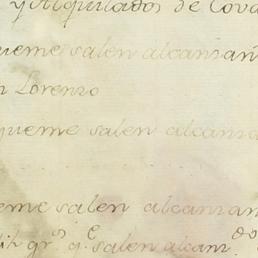 y Alquilados de Cova
queme salen alcanzan
n Lorenzo
queme salen alcanza
eme salen alcanzan
grs. q.e salen alcanz.dos